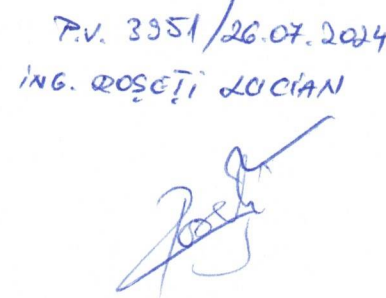 P.V. 3951/26.07.2024
ING. ROȘEȚI LUCIAN